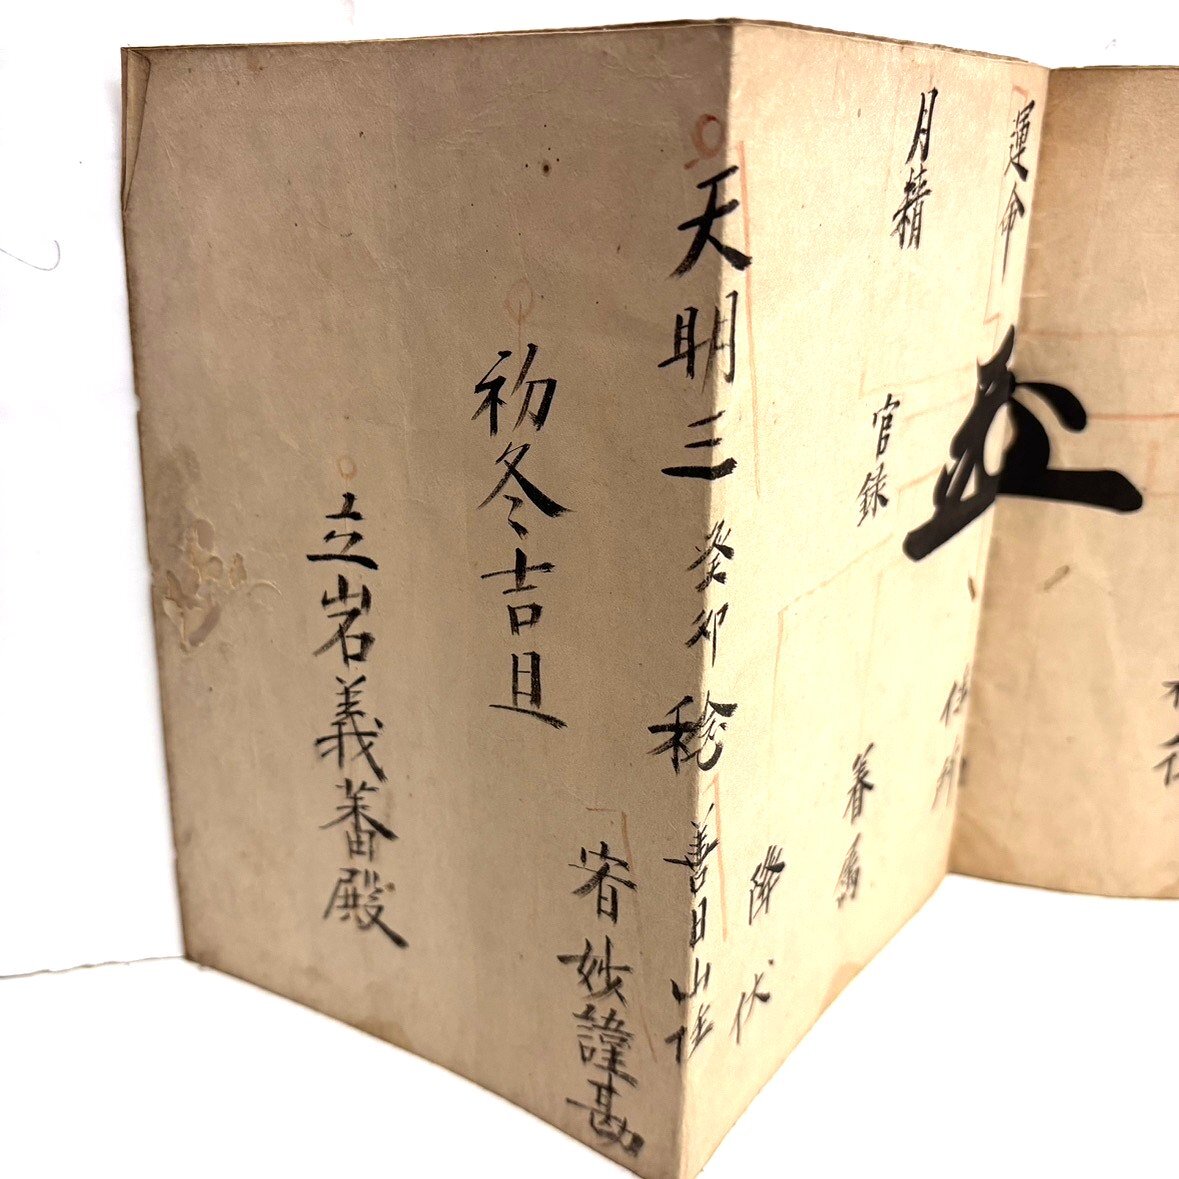 運命
月精
官録
眷属
降伏
天明三癸卯稔
善日山住
初冬吉旦
宥妙謹勘
立岩義蕃殿